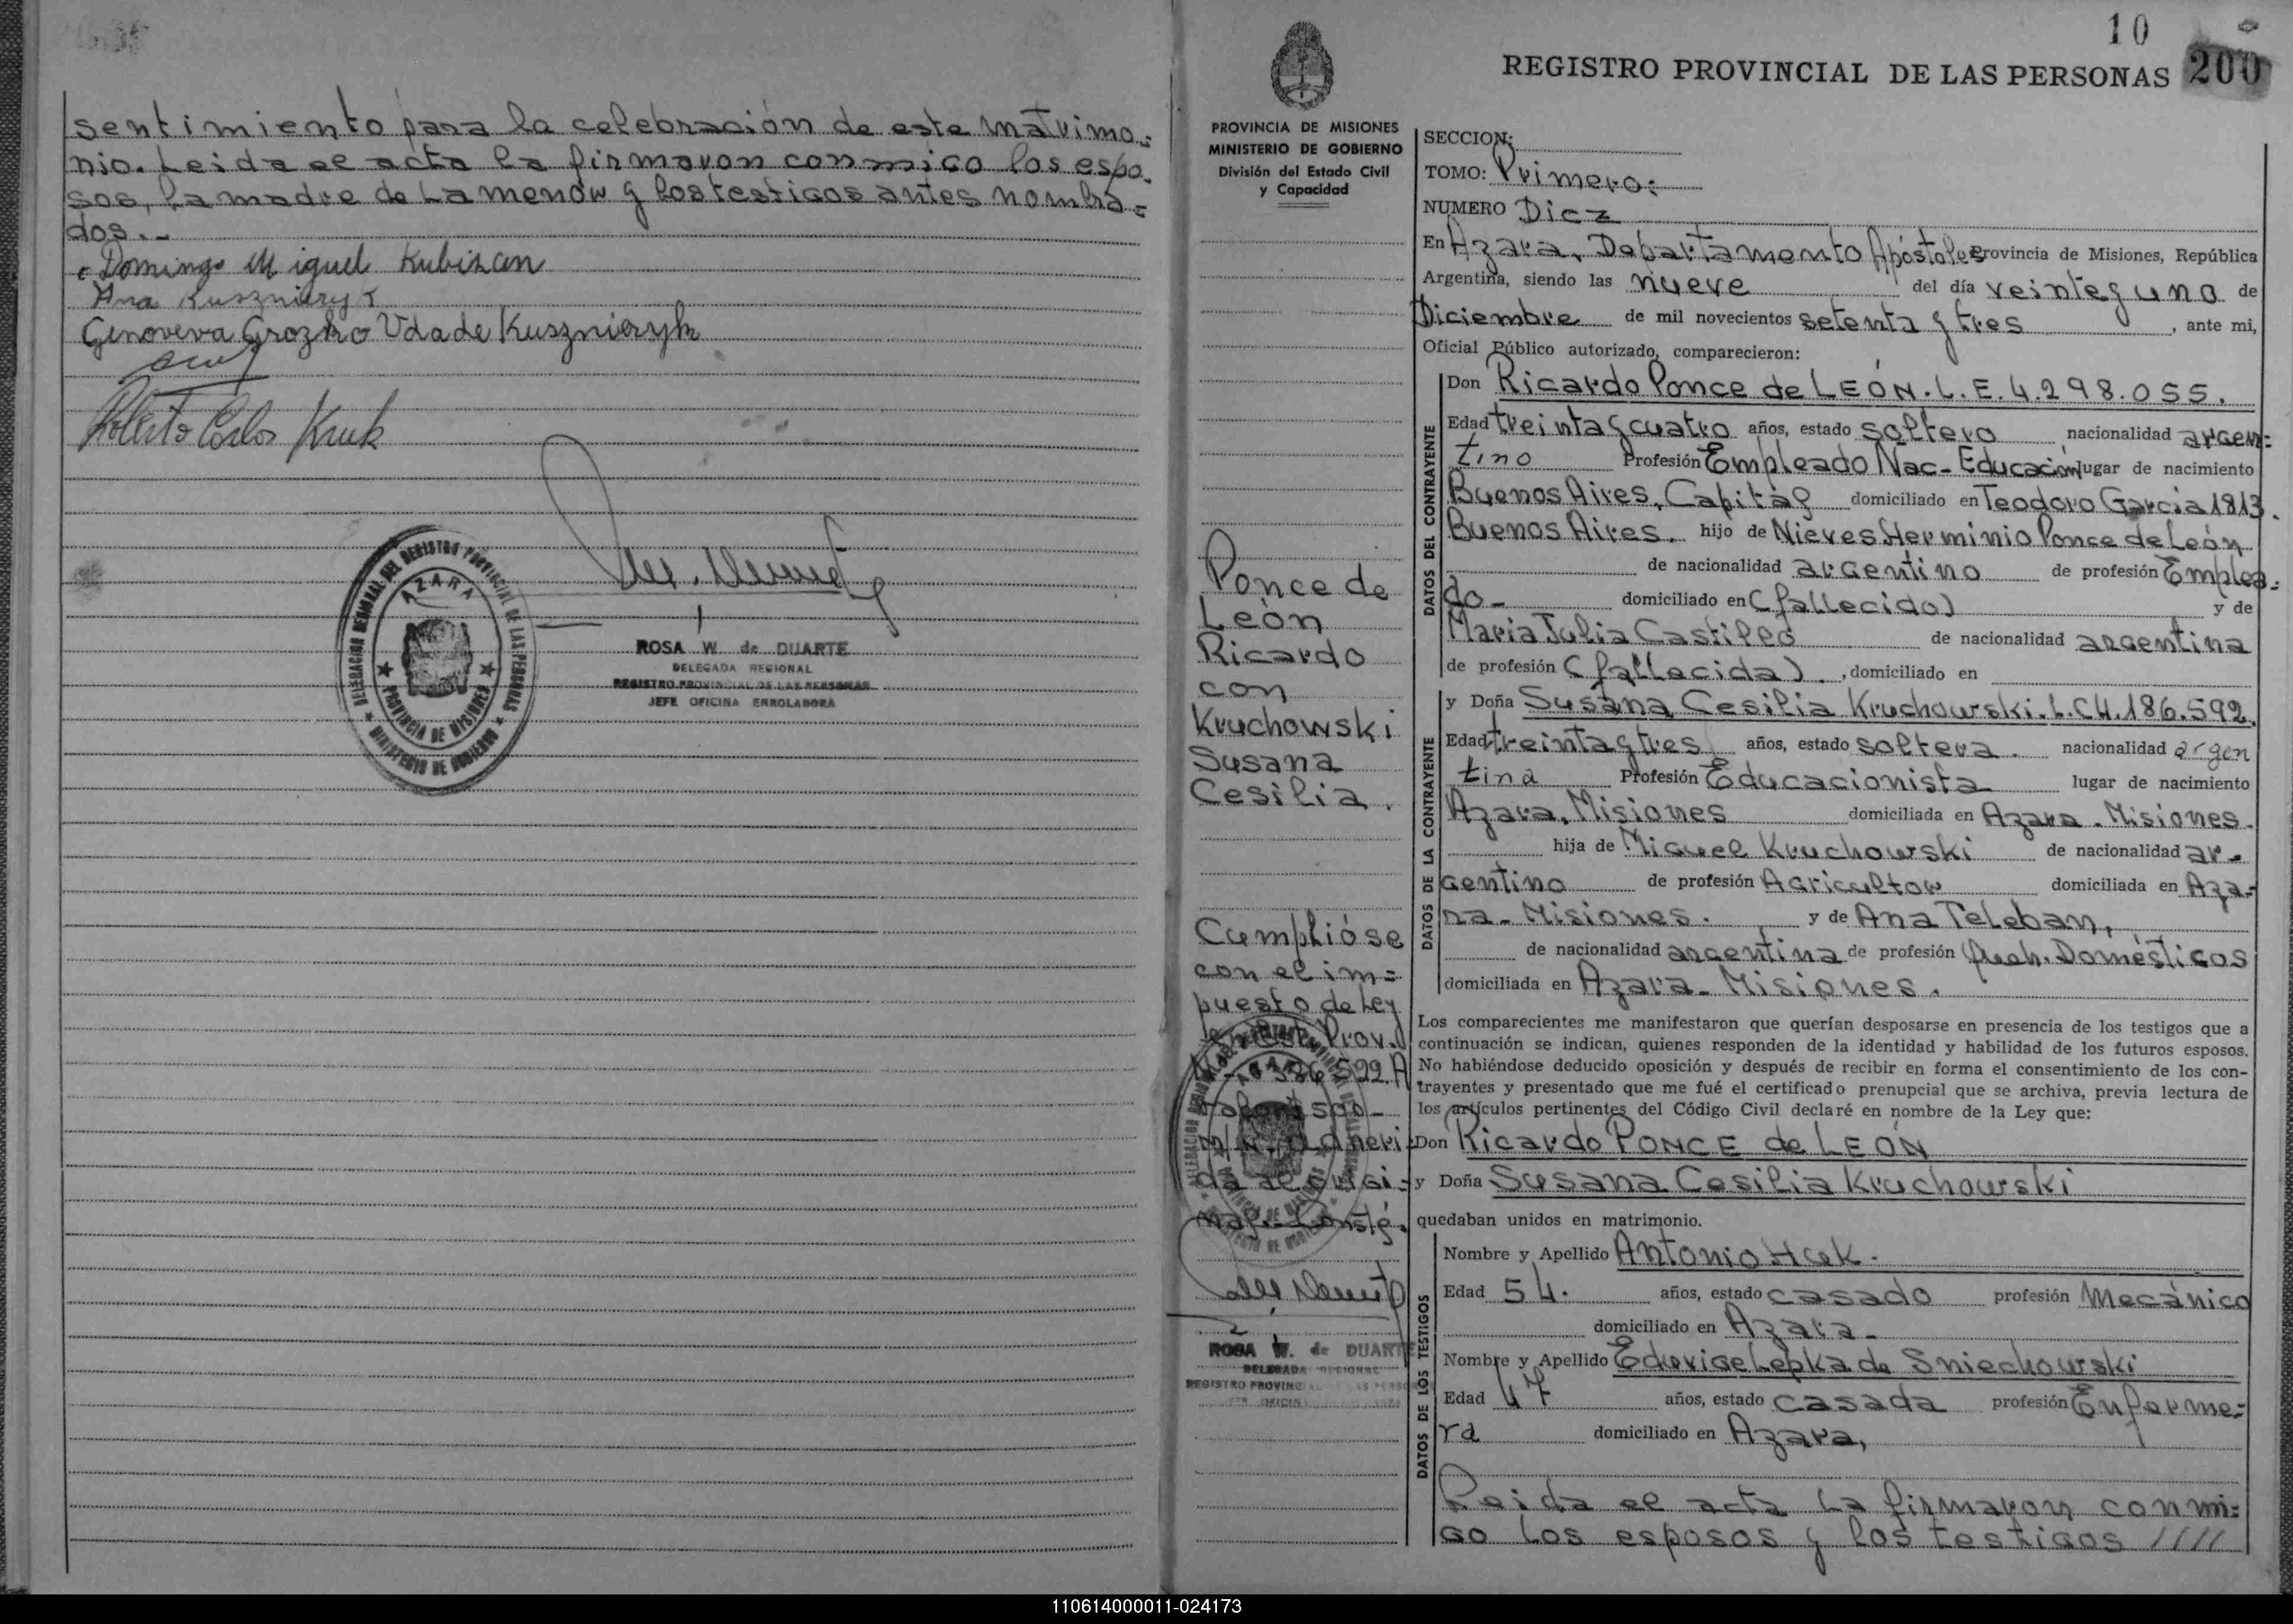 sentimiento para la celebración de este matrimo=
nio. Leida el acta la firmaron conmigo los espo-
sos, la madre de La menor y los testigos antes nombra=
dos.-
Domingo Miguel Kubiszen
Ana Kuszniery
Genoveva Grozko Vda de Kusznieryk
Roberto Carlos Kruk
DELEGACION REGIONAL DEL REGISTRO PROVINCIAL DE LAS PERSONAS
AZARA
PROVINCIA DE MISIONES
MINISTERIO DE GOBIERNO
ROSA W. de DUARTE
DELEGADA REGIONAL
REGISTRO PROVINCIAL DE LAS PERSONAS
JEFE OFICINA ENROLADORA
10
REGISTRO PROVINCIAL DE LAS PERSONAS 200
PROVINCIA DE MISIONES
MINISTERIO DE GOBIERNO
División del Estado Civil
y Capacidad
Ponce de
León
Ricardo
con
Kruchowski
Susana
Cesilia.
Cumplióse
con el im=
puesto de Ley
Prov.
586522 A
adheri=
da al origi=
nal. Conste.
ROSA W. de DUARTE
DELEGADA REGIONAL
REGISTRO PROVINCIAL DE LAS PERSONAS
SECCION:
TOMO: Primero:
NUMERO Diez
En Azara, Departamento Apóstoles Provincia de Misiones, República
Argentina, siendo las nueve del día veinteyuno de
Diciembre de mil novecientos setenta y tres, ante mi,
Oficial Público autorizado, comparecieron:
DATOS DEL CONTRAYENTE
Don Ricardo Ponce de LEÓN. L.E. 4.298.055.
Edad treintaycuatro años, estado soltero nacionalidad argen=
tino Profesión Empleado Nac-Educación lugar de nacimiento
Buenos Aires, Capital domiciliado en Teodoro Garcia 1813.
Buenos Aires. hijo de Nieves Herminio Ponce de León
de nacionalidad argentino de profesión Emplea=
do- domiciliado en (fallecido) y de
Maria Julia Castilpo de nacionalidad argentina
de profesión (fallecida)., domiciliado en
DATOS DE LA CONTRAYENTE
y Doña Susana Cesilia Kruchowski. L.C 4.186.592.
Edad treintaytres años, estado soltera. nacionalidad argen
tina Profesión Educacionista lugar de nacimiento
Azara, Misiones domiciliada en Azara. Misiones.
hija de Miguel Kruchowski de nacionalidad ar-
gentino de profesión Agricultor domiciliada en Aza=
ra- Misiones. y de Ana Teleban,
de nacionalidad argentina de profesión Queh. Domésticos
domiciliada en Azara- Misiones.
Los comparecientes me manifestaron que querían desposarse en presencia de los testigos que a
continuación se indican, quienes responden de la identidad y habilidad de los futuros esposos.
No habiéndose deducido oposición y después de recibir en forma el consentimiento de los con-
trayentes y presentado que me fué el certificado prenupcial que se archiva, previa lectura de
los artículos pertinentes del Código Civil declaré en nombre de la Ley que:
Don Ricardo PONCE de LEÓN
y Doña Susana Cesilia Kruchowski
quedaban unidos en matrimonio.
DATOS DE LOS TESTIGOS
Nombre y Apellido Antonio Huk.
Edad 54. años, estado casado profesión Mecánico
domiciliado en Azara-
Nombre y Apellido Eduvige Lepka de Sniechowski
Edad 47 años, estado casada profesión Enferme=
ra domiciliado en Azara,
Leida el acta La firmaron conmi=
go los esposos y los testigos /////
110614000011-024173